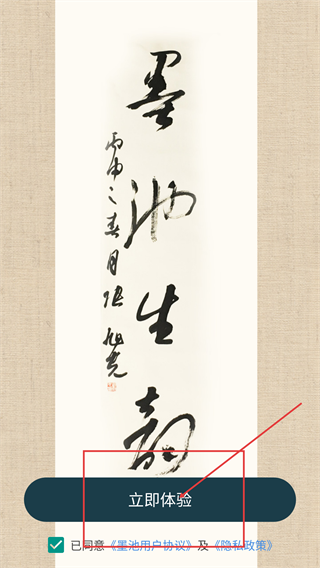 墨池生韵
丙申之春月张旭光
立即体验
已同意《墨池用户协议》及《隐私政策》